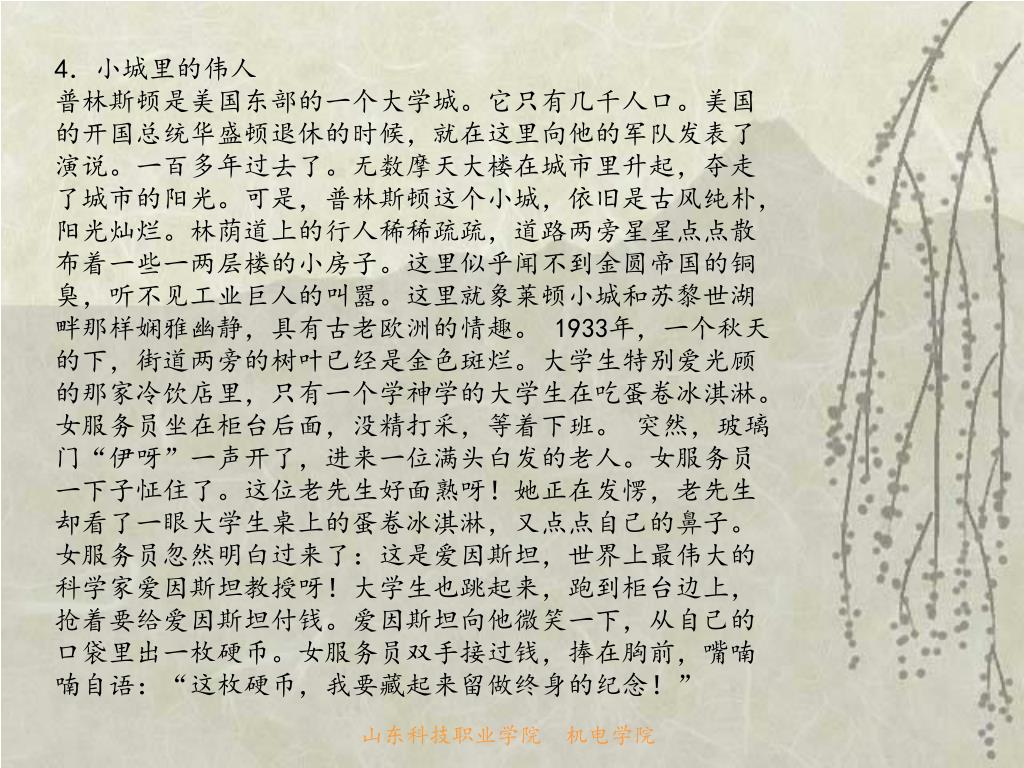 4. 小城里的伟人
普林斯顿是美国东部的一个大学城。它只有几千人口。美国
的开国总统华盛顿退休的时候，就在这里向他的军队发表了
演说。一百多年过去了。无数摩天大楼在城市里升起，夺走
了城市的阳光。可是，普林斯顿这个小城，依旧是古风纯朴，
阳光灿烂。林荫道上的行人稀稀疏疏，道路两旁星星点点散
布着一些一两层楼的小房子。这里似乎闻不到金圆帝国的铜
臭，听不见工业巨人的叫嚣。这里就象莱顿小城和苏黎世湖
畔那样娴雅幽静，具有古老欧洲的情趣。 1933年，一个秋天
的下，街道两旁的树叶已经是金色斑烂。大学生特别爱光顾
的那家冷饮店里，只有一个学神学的大学生在吃蛋卷冰淇淋。
女服务员坐在柜台后面，没精打采，等着下班。 突然，玻璃
门“伊呀”一声开了，进来一位满头白发的老人。女服务员
一下子怔住了。这位老先生好面熟呀！她正在发愣，老先生
却看了一眼大学生桌上的蛋卷冰淇淋，又点点自己的鼻子。
女服务员忽然明白过来了：这是爱因斯坦，世界上最伟大的
科学家爱因斯坦教授呀！大学生也跳起来，跑到柜台边上，
抢着要给爱因斯坦付钱。爱因斯坦向他微笑一下，从自己的
口袋里出一枚硬币。女服务员双手接过钱，捧在胸前，嘴喃
喃自语：“这枚硬币，我要藏起来留做终身的纪念！”
山东科技职业学院 机电学院